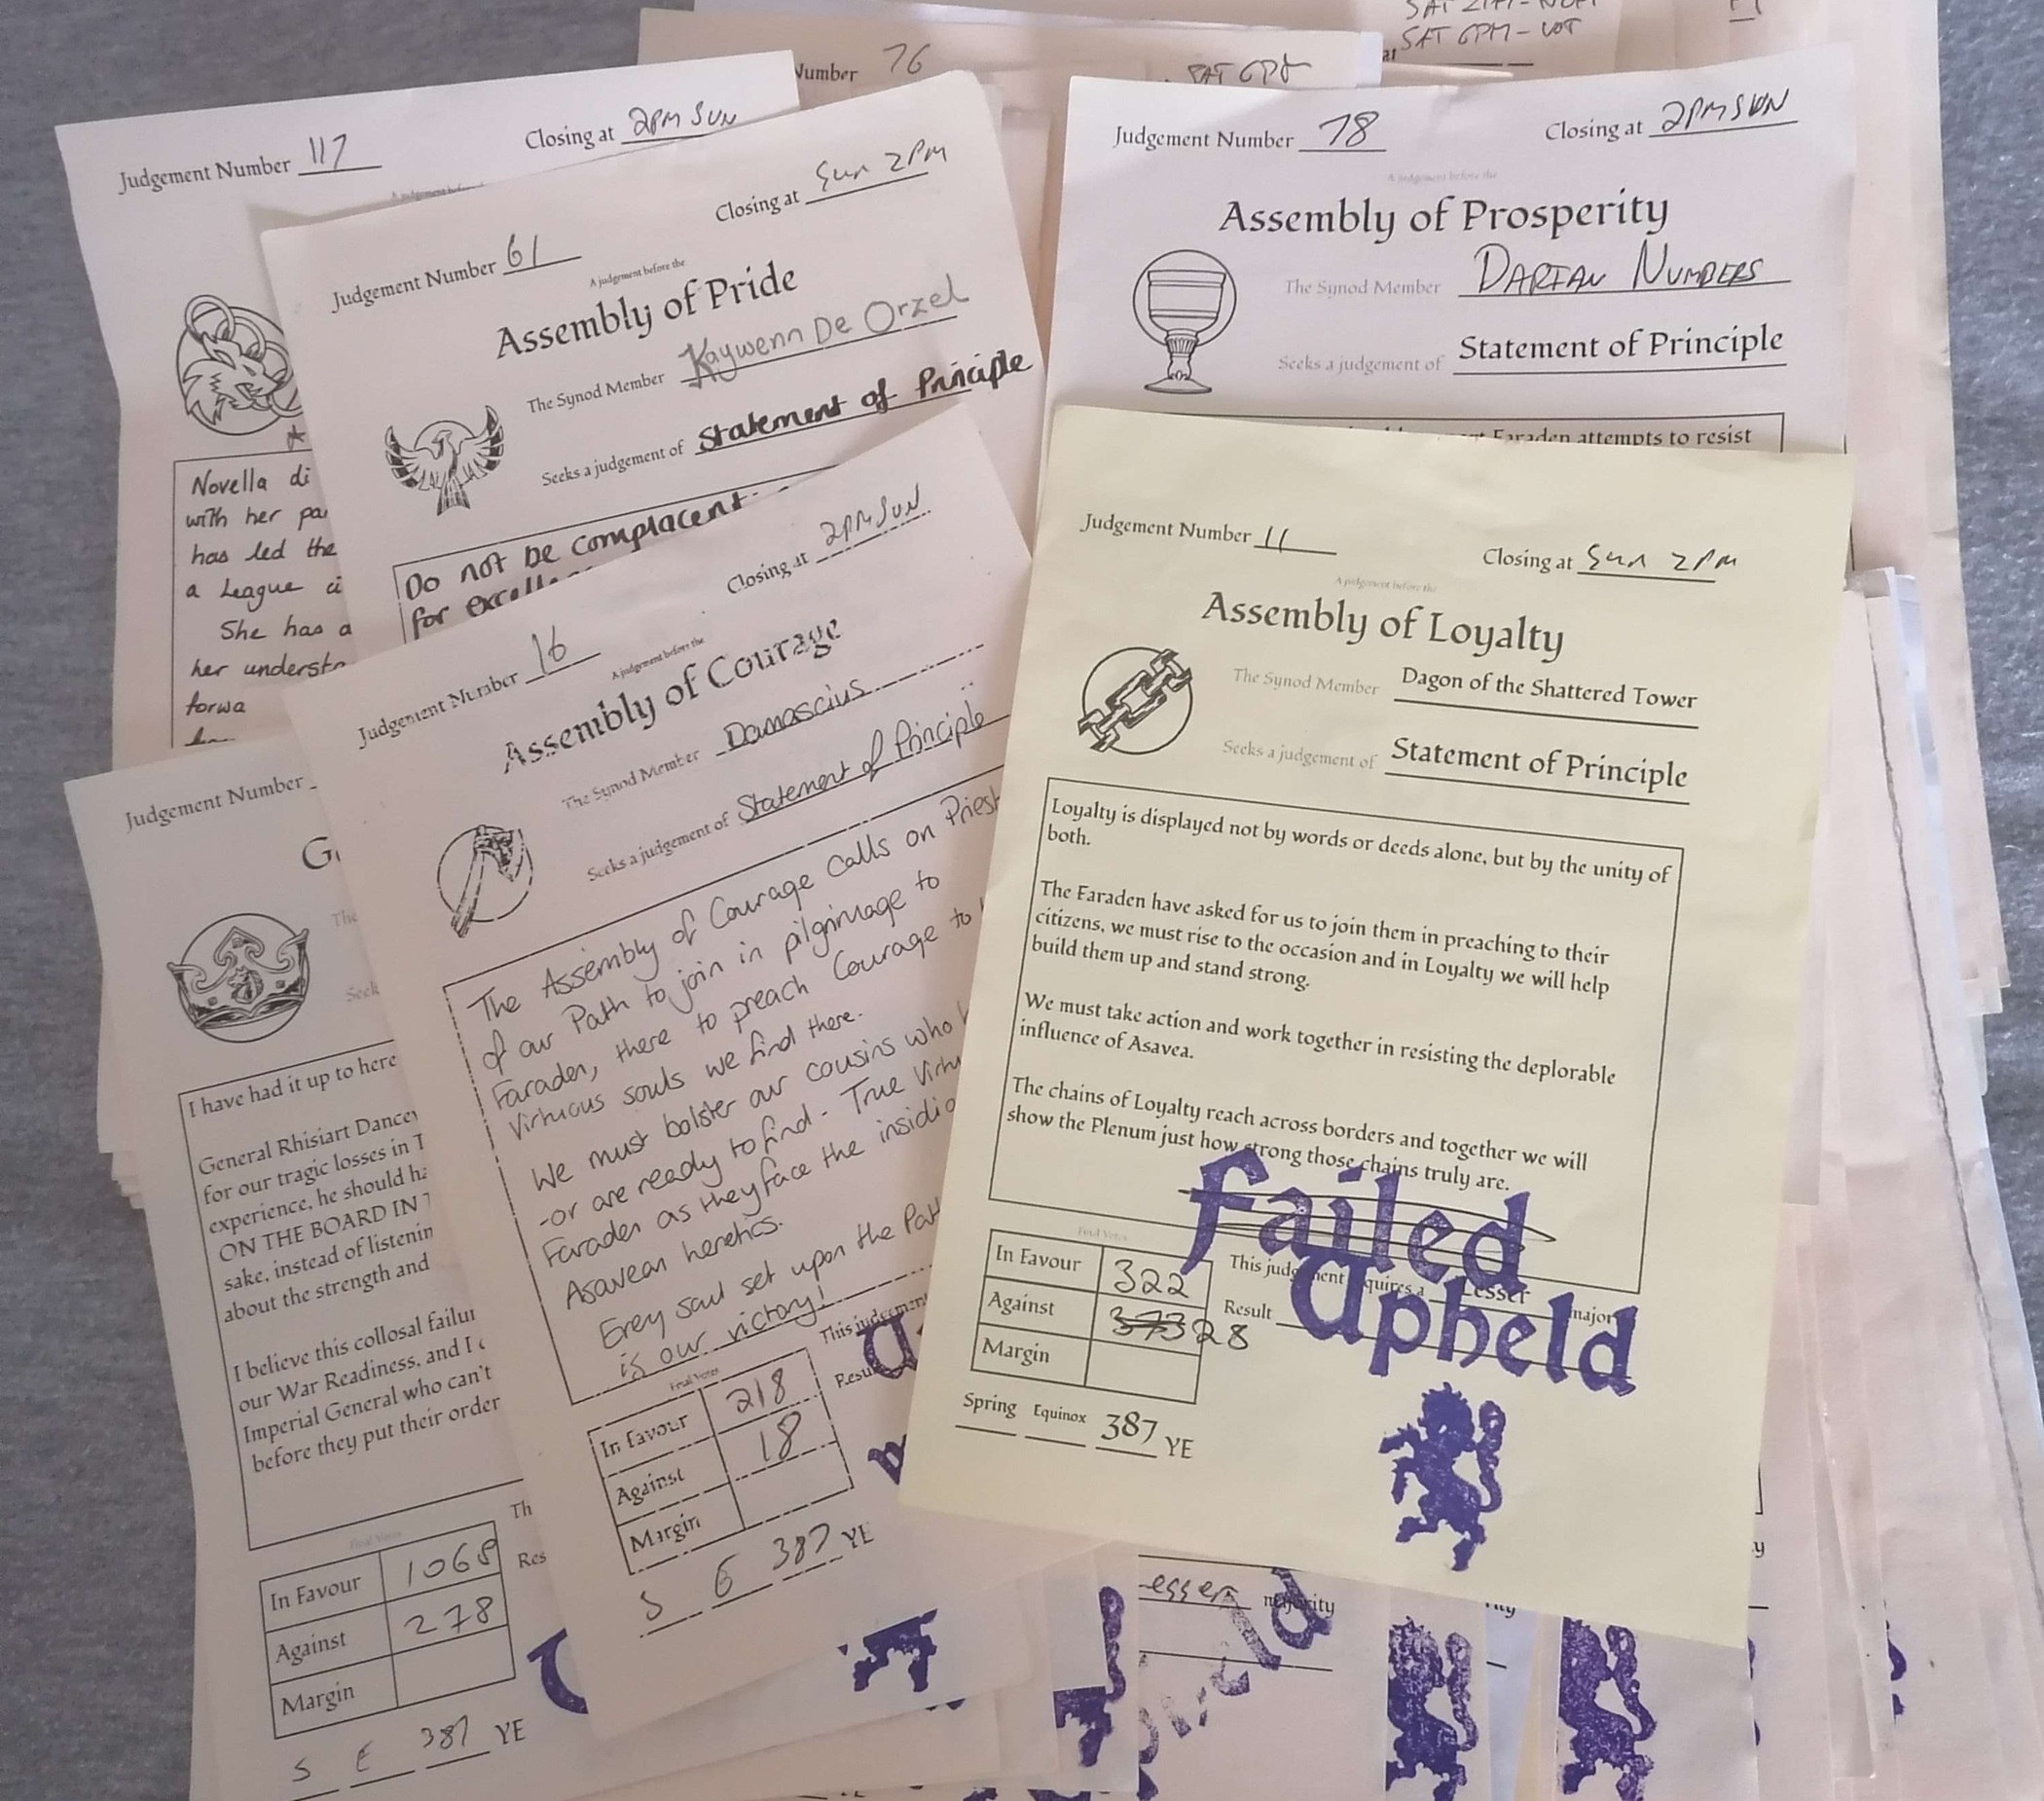 SAT 6PM - VOT
Number 76
SAT 6PM
Judgement Number 117
Closing at 2PM SUN
A judgement before
Novella di
with her pa
has led the
a League ci
She has a
her understa
forwa
Judgement Number 61
Closing at Sun 2PM
A judgement before the
Assembly of Pride
The Synod Member Kaywenn De Orzel
Seeks a judgement of Statement of Principle
Do not be complacent
for excelle
Judgement Number 78
Closing at 2PM SUN
A judgement before the
Assembly of Prosperity
The Synod Member DARIAN NUMBERS
Seeks a judgement of Statement of Principle
Faraden attempts to resist
Judgement Number 16
Closing at 2PM SUN
A judgement before the
Assembly of Courage
The Synod Member Damascius
Seeks a judgement of Statement of Principle
The Assembly of Courage calls on Priest
of our Path to join in pilgrimage to
Faraden, there to preach Courage to
Virtuous souls we find there.
We must bolster our cousins who
-or are ready to find - True Virtu
Faraden as they face the insidio
Asavean heretics.
Erey soul set upon the Pat
is our victory!
Final Votes
This judgement
In Favour 218
Against 18
Margin
S E 387 YE
Judgement Number 11
Closing at Sun 2PM
A judgement before the
Assembly of Loyalty
The Synod Member Dagon of the Shattered Tower
Seeks a judgement of Statement of Principle
Loyalty is displayed not by words or deeds alone, but by the unity of
both.
The Faraden have asked for us to join them in preaching to their
citizens, we must rise to the occasion and in Loyalty we will help
build them up and stand strong.
We must take action and work together in resisting the deplorable
influence of Asavea.
The chains of Loyalty reach across borders and together we will
show the Plenum just how strong those chains truly are.
Failed
Final Votes
In Favour 322
This judgement requires a Lesser major
Against 373 28
Result Upheld
Margin
Spring Equinox 387 YE
Judgement Number
G
The
Seek
I have had it up to here
General Rhisiart Dancey
for our tragic losses in T
experience, he should ha
ON THE BOARD IN T
sake, instead of listenin
about the strength and
I believe this collosal failur
our War Readiness, and I
Imperial General who can't
before they put their order
Final Votes
Th
In Favour 1068
Res
Against 278
Margin
S E 387 YE
esser majority